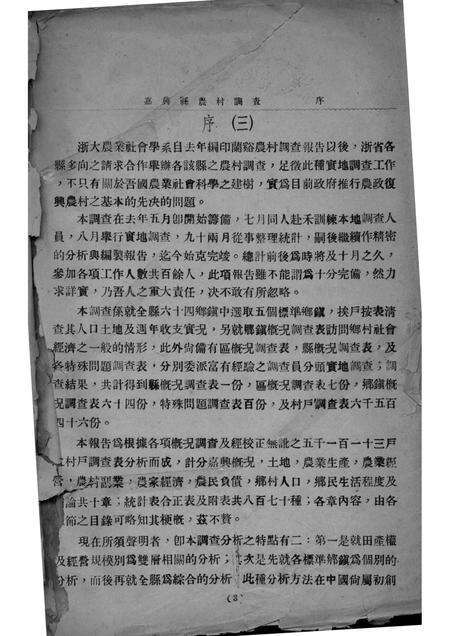 嘉興縣農村調查　序
序 (三)
浙大農業社會學系自去年編印蘭谿農村調查報告以後，浙省各
縣多向之請求合作舉辦各該縣之農村調查，足徵此種實地調查工作
，不只有關於吾國農業社會科學之建樹，實爲目前政府推行農政復
興農村之基本的先決的問題。
本調查在去年五月卽開始籌備，七月同人赴禾訓練本地調查人
員，八月舉行實地調查，九十兩月從事整理統計，嗣後繼續作精密
的分析與編製報告，迄今始克完竣。總計前後爲時將及十月之久，
參加各項工作人數共百餘人，此項報告雖不能謂爲十分完備，然力
求詳實，乃吾人之重大責任，決不敢有所忽略。
本調查係就全縣六十四鄉鎮中選取五個標準鄉鎮，挨戶按表清
查其人口土地及週年收支實况，另就鄉鎮概况調查表訪問鄉村社會
經濟之一般的情形，此外尙備有區概况調查表，縣概况調查表，及
各特殊問題調查表，分別委派富有經驗之調查員分頭實地調查；調
查結果，共計得到縣概况調查表一份，區概况調查表七份，鄉鎮概
况調查表六十四份，特殊問題調查表百份，及村戶調查表六千五百
四十六份。
本報告爲根據各項概况調查及經校正無訛之五千一百一十三戶
之村戶調查表分析而成，計分嘉興概况，土地，農業生產，農業經
營，農村副業，農家經濟，農民負債，鄉村人口，鄉民生活程度及
結論共十章；統計表合正表及附表共八百七十種；各章內容，由各
節之目錄可略知其梗概，茲不贅。
現在所須聲明者，卽本調查分析之特點有二：第一是就田產權
及經營規模別爲雙層相關的分析；次是先就各標準鄉鎮爲個別的
分析，而後再就全縣爲綜合的分析，此種分析方法在中國尙屬初創
(3)